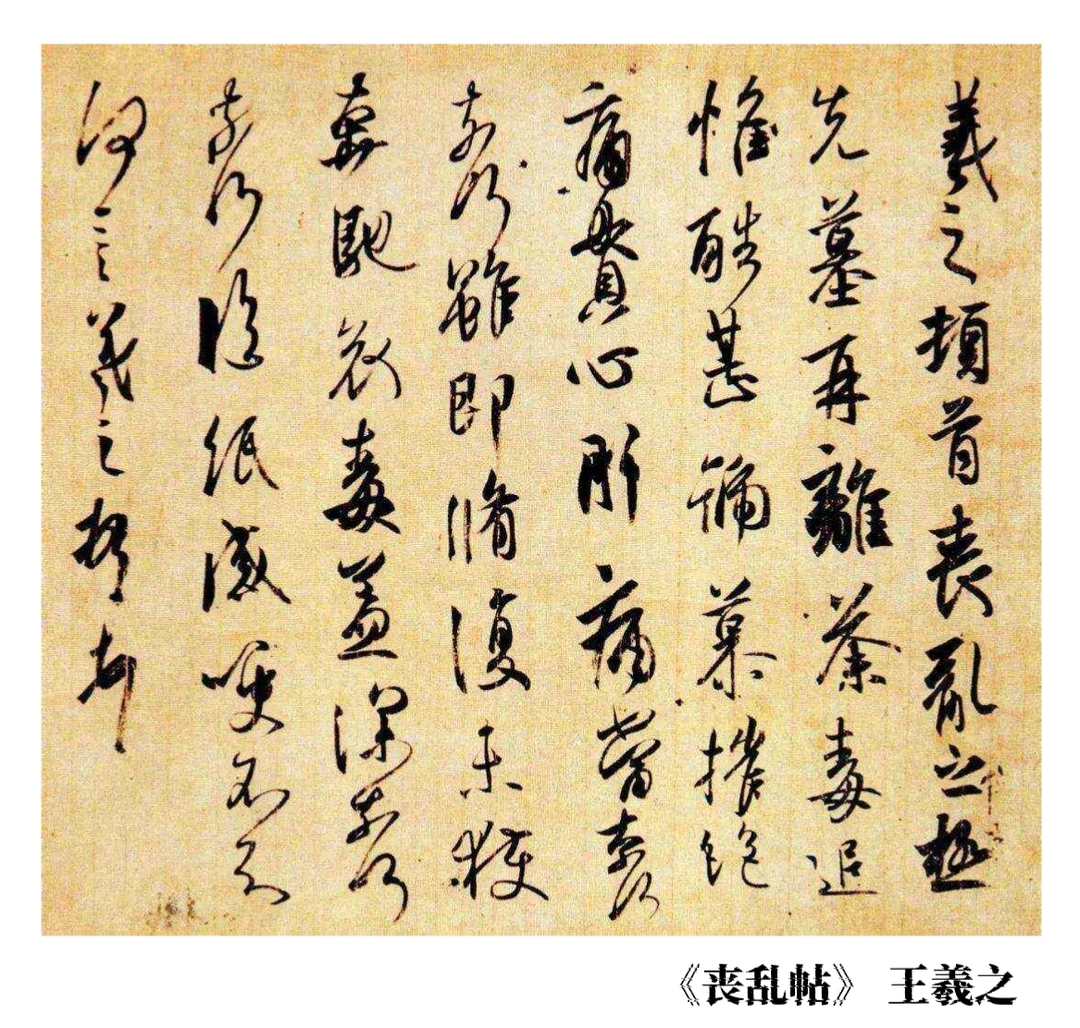 羲之頓首喪亂之極
先墓再離荼毒追
惟酷甚號慕摧絕
痛貫心肝痛當奈何
奈何雖即脩復未獲
奔馳哀毒益深奈何
奈何臨紙感哽不知
何言羲之頓首頓首
《丧乱帖》 王羲之